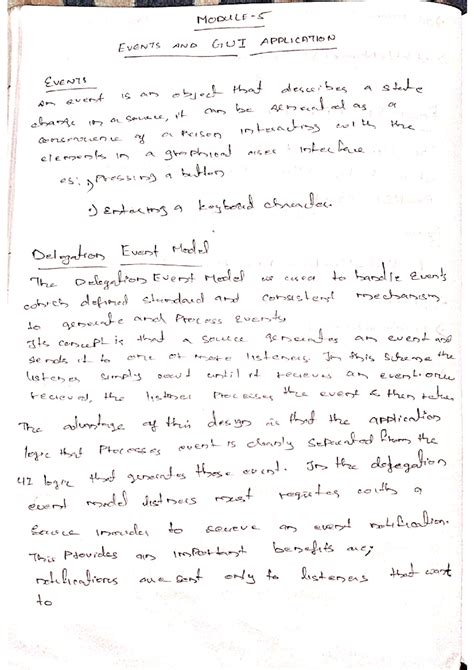 MODULE-5
EVENTS AND GUI APPLICATION
EVENTS
An event is an object that describes a state
change in a source, it can be generated as a
consequence of a Person interacting with the
elements in a graphical user interface
es: 1) Pressing a button
2) Entering a keyboard character.
Delegation Event Model
The Delegation Event Model is used to handle Events
which defined standard and consistent mechanism
to generate and Process Events
Its concept is that a source generates an event and
sends it to one or more listeners. In this Scheme the
listener simply wait until it recieves an event. once
recieved, the listner Processes the event & then return
The advantage of this design is that the application
logic that Processes event is cleanly Separated from the
UI logic that generates those event. In the delegation
event model listners must register with a
Source inorder to recieve an event notification.
This Provides an important benefits as;
notifications are sent only to listeners that want
to